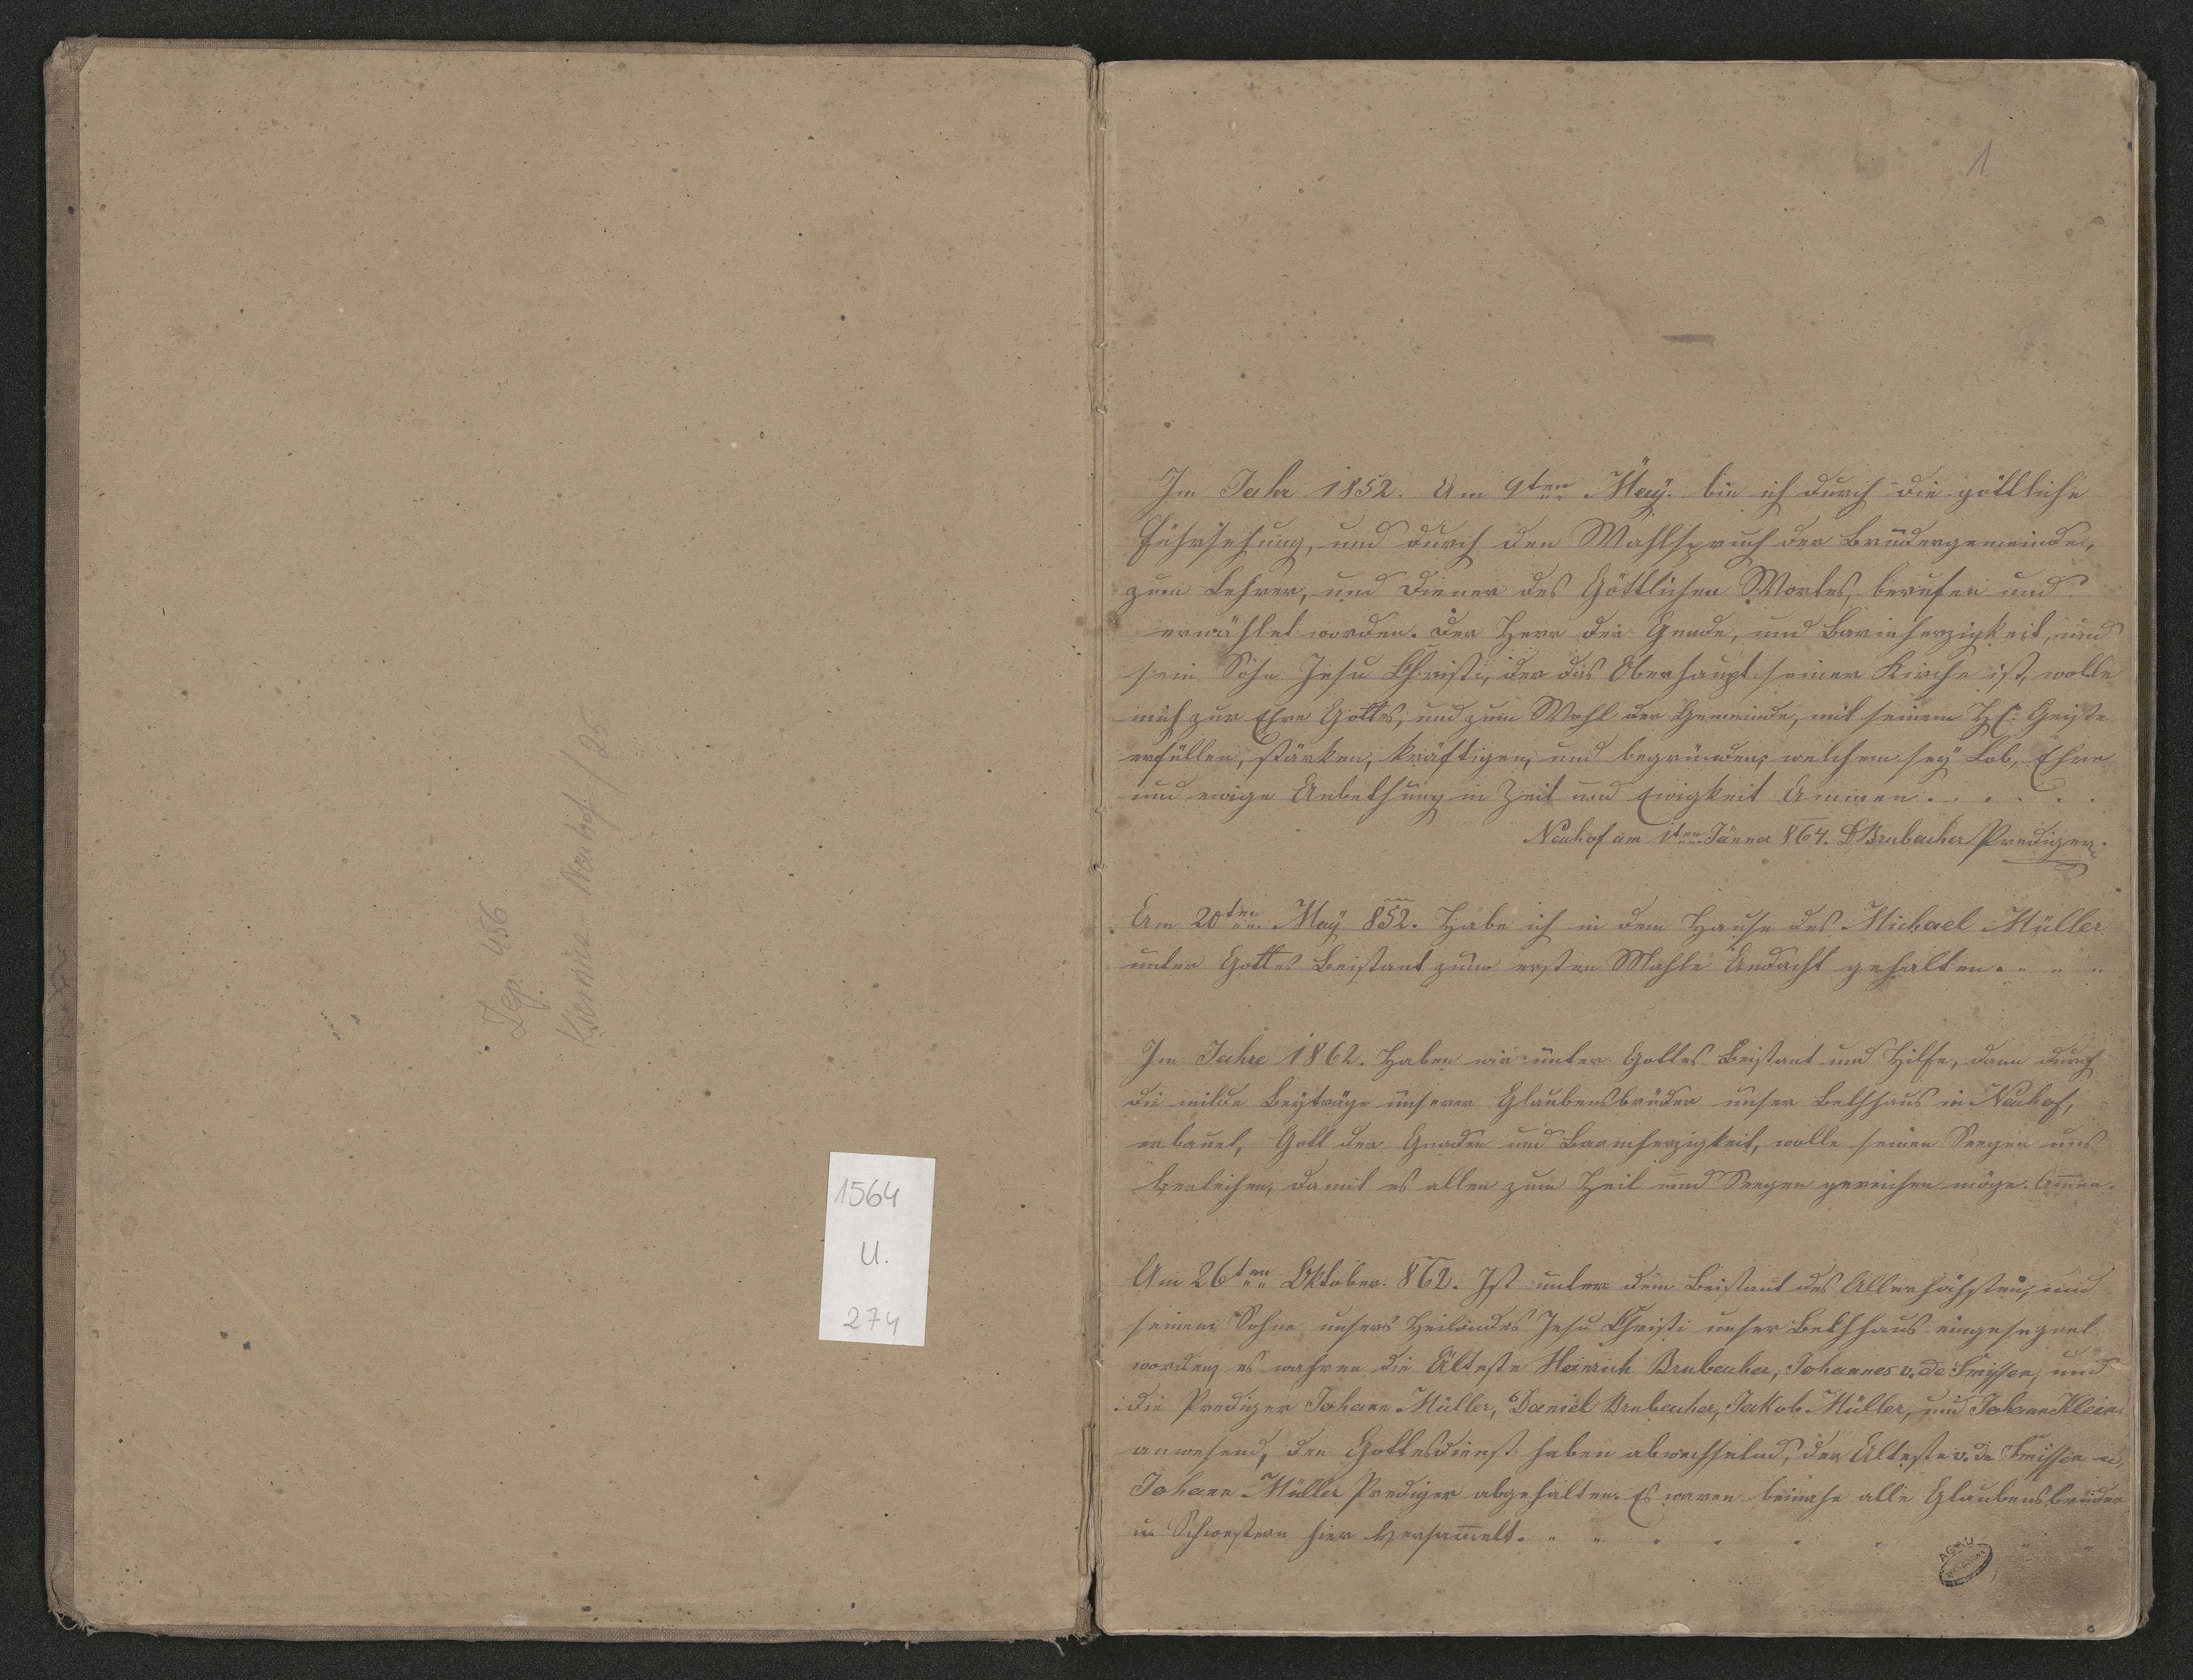 Zesp. 456
Kiernica-Neuhof /25
1564
U.
274
1
Im Jahr 1852. Am 9ten May. bin ich durch die göttliche
Führsehung, und durch den Wahlspruch der Brüdergemeinde,
zum Lehrer, und Diener des Göttlichen Wortes, berufen und
erwählet worden. Der Herr der Gnade, und Barmherzigkeit, und
sein Sohn Jesu Christi, der das Oberhaupt seiner Kirche ist, wolle
mich zur Ehre Gottes, und zum Wohl der Gemeinde, mit seinem Hl: Geiste
erfüllen, stärken, kräftigen, und begründen, welchem sey Lob, Ehre
und ewige Anbethung in Zeit und Ewigkeit Ammen . . . . .
Neuhof am 1ten Jänner 864. D Brubacher Prediger.
Am 20ten May 852. Habe ich in dem Hause des Michael Müller
unter Gottes Beistant zum ersten Mahle Andacht gehalten. . . .
Im Jahre 1862. Haben wir unter Gottes Beistant und Hilfe, dann durch
die milde Beyträge unserer Glaubensbrüder unser Bethhaus in Neuhof,
erbauet, Gott der Gnaden und Barmherzigkeit, wolle seinen Seegen uns
verleihen, damit es allen zum Heil und Seegen gereichen möge. Am̅en.
Am 26ten Oktober. 862. Ist unter dem Beistant des Allerhöchsten, und
seinem Sohne unsers Heilandes Jesu Christi unser Bethhaus eingesegnet
worden, es wahren die Älteste Heinrich Brubacher, Johannes v. de Smissen, und
die Prediger Johann Müller, Daniel Brubacher, Jakob Müller, und Johann Klein
anwesend, den Gottesdienst haben abwechselnd, der Älteste v. de Smissen u,
Johann Müller Prediger abgehalten. Es waren beinahe alle Glaubensbrüder
u. Schwestern hier versam̅elt. . . . . . .
AGAD